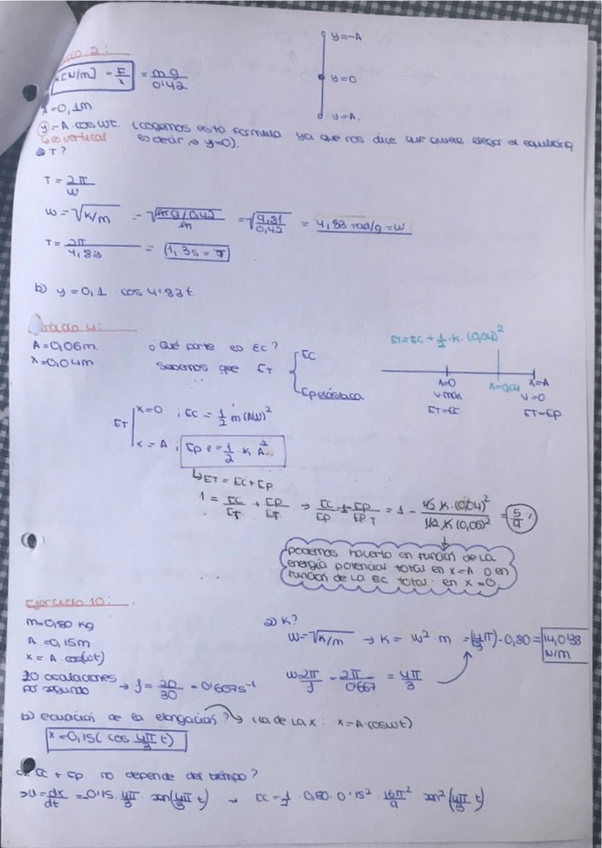 y=-A
y=0
y=A
K[N/m] = F/x = m g / 0'42
x=0,1m
y=A·cos wt. (cogemos esta formula ya que nos dice que quiere llegar al equilibrio
es vertical es decir, → y=0).
a T?
T = 2π / w
w = √K/m = √m g/0,42 / m = √9,81/0,42 = 4,83 rad/s = w
T = 2π / 4,83 = 1,3s = T
b) y=0,1 · cos 4'83t
A=0,06m.
x=0,04m
¿Qué parte es EC?
Sabemos que ET { EC
Epelástica
ET = EC + 1/2 · K · (0,04)²
x=0 x=0,04 x=A
v máx v=0
ET=EC ET=EP
ET | x=0 ; EC = 1/2 m (Aw)²
x=A, Ep e = 1/2 K A²
↳ ET = EC+Ep
1 = EC/ET + EP/ET
= 1 - 1/2 K·(0,04)² / 1/2 K (0,06)² = 5/9
podemos hacerlo en función de la
energía potencial total en x=A o en
función de la EC total en x=0.
Ejercicio 10:
m=0,80 kg
A=0,15m
x = A cos(wt)
20 oscilaciones
por segundo → f = 20/30 = 0'667s⁻¹
a) K?
w=√K/m → K = w² · m = (4/3π)² · 0,80 = 14,038 N/m
w 2π/f = 2π/0'667 = 4π/3
b) ecuación de la elongación? → la de la x: x=A·cos wt)
x=0,15( cos 4π/3 t)
c) EC + Ep no depende del tiempo?
→ v = dx/dt = 0'15 · 4π/3 · sen(4π/3 t) → EC = 1/2 0,80 · 0'15² · 16π²/9 sen² (4π/3 t)